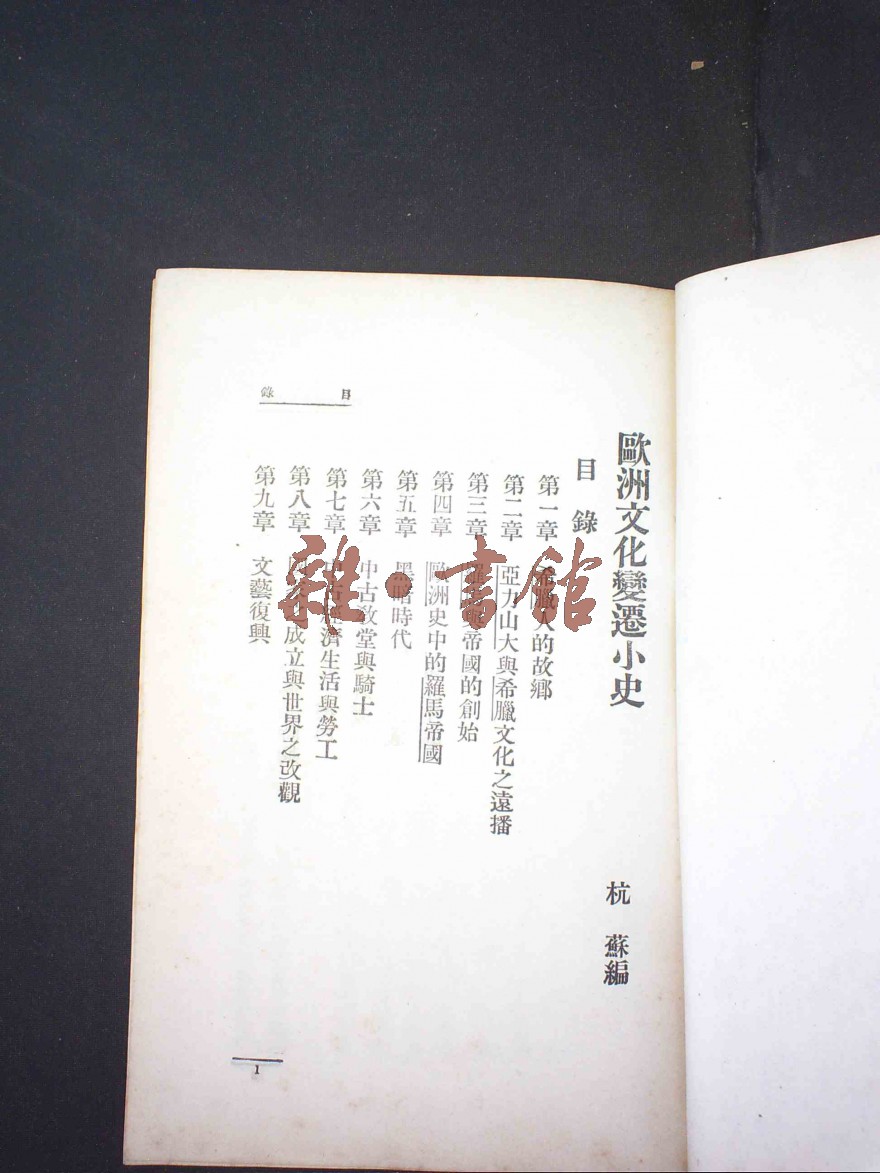 歐洲文化變遷小史
杭 蘇編
目 錄
第一章 希臘人的故鄉
第二章 亞力山大與希臘文化之遠播
第三章 羅馬與帝國的創始
第四章 歐洲史中的羅馬帝國
第五章 黑暗時代
第六章 中古敎堂與騎士
第七章 中古經濟生活與勞工
第八章 成立與世界之改觀
第九章 文藝復興
目 錄
1
雜·書館